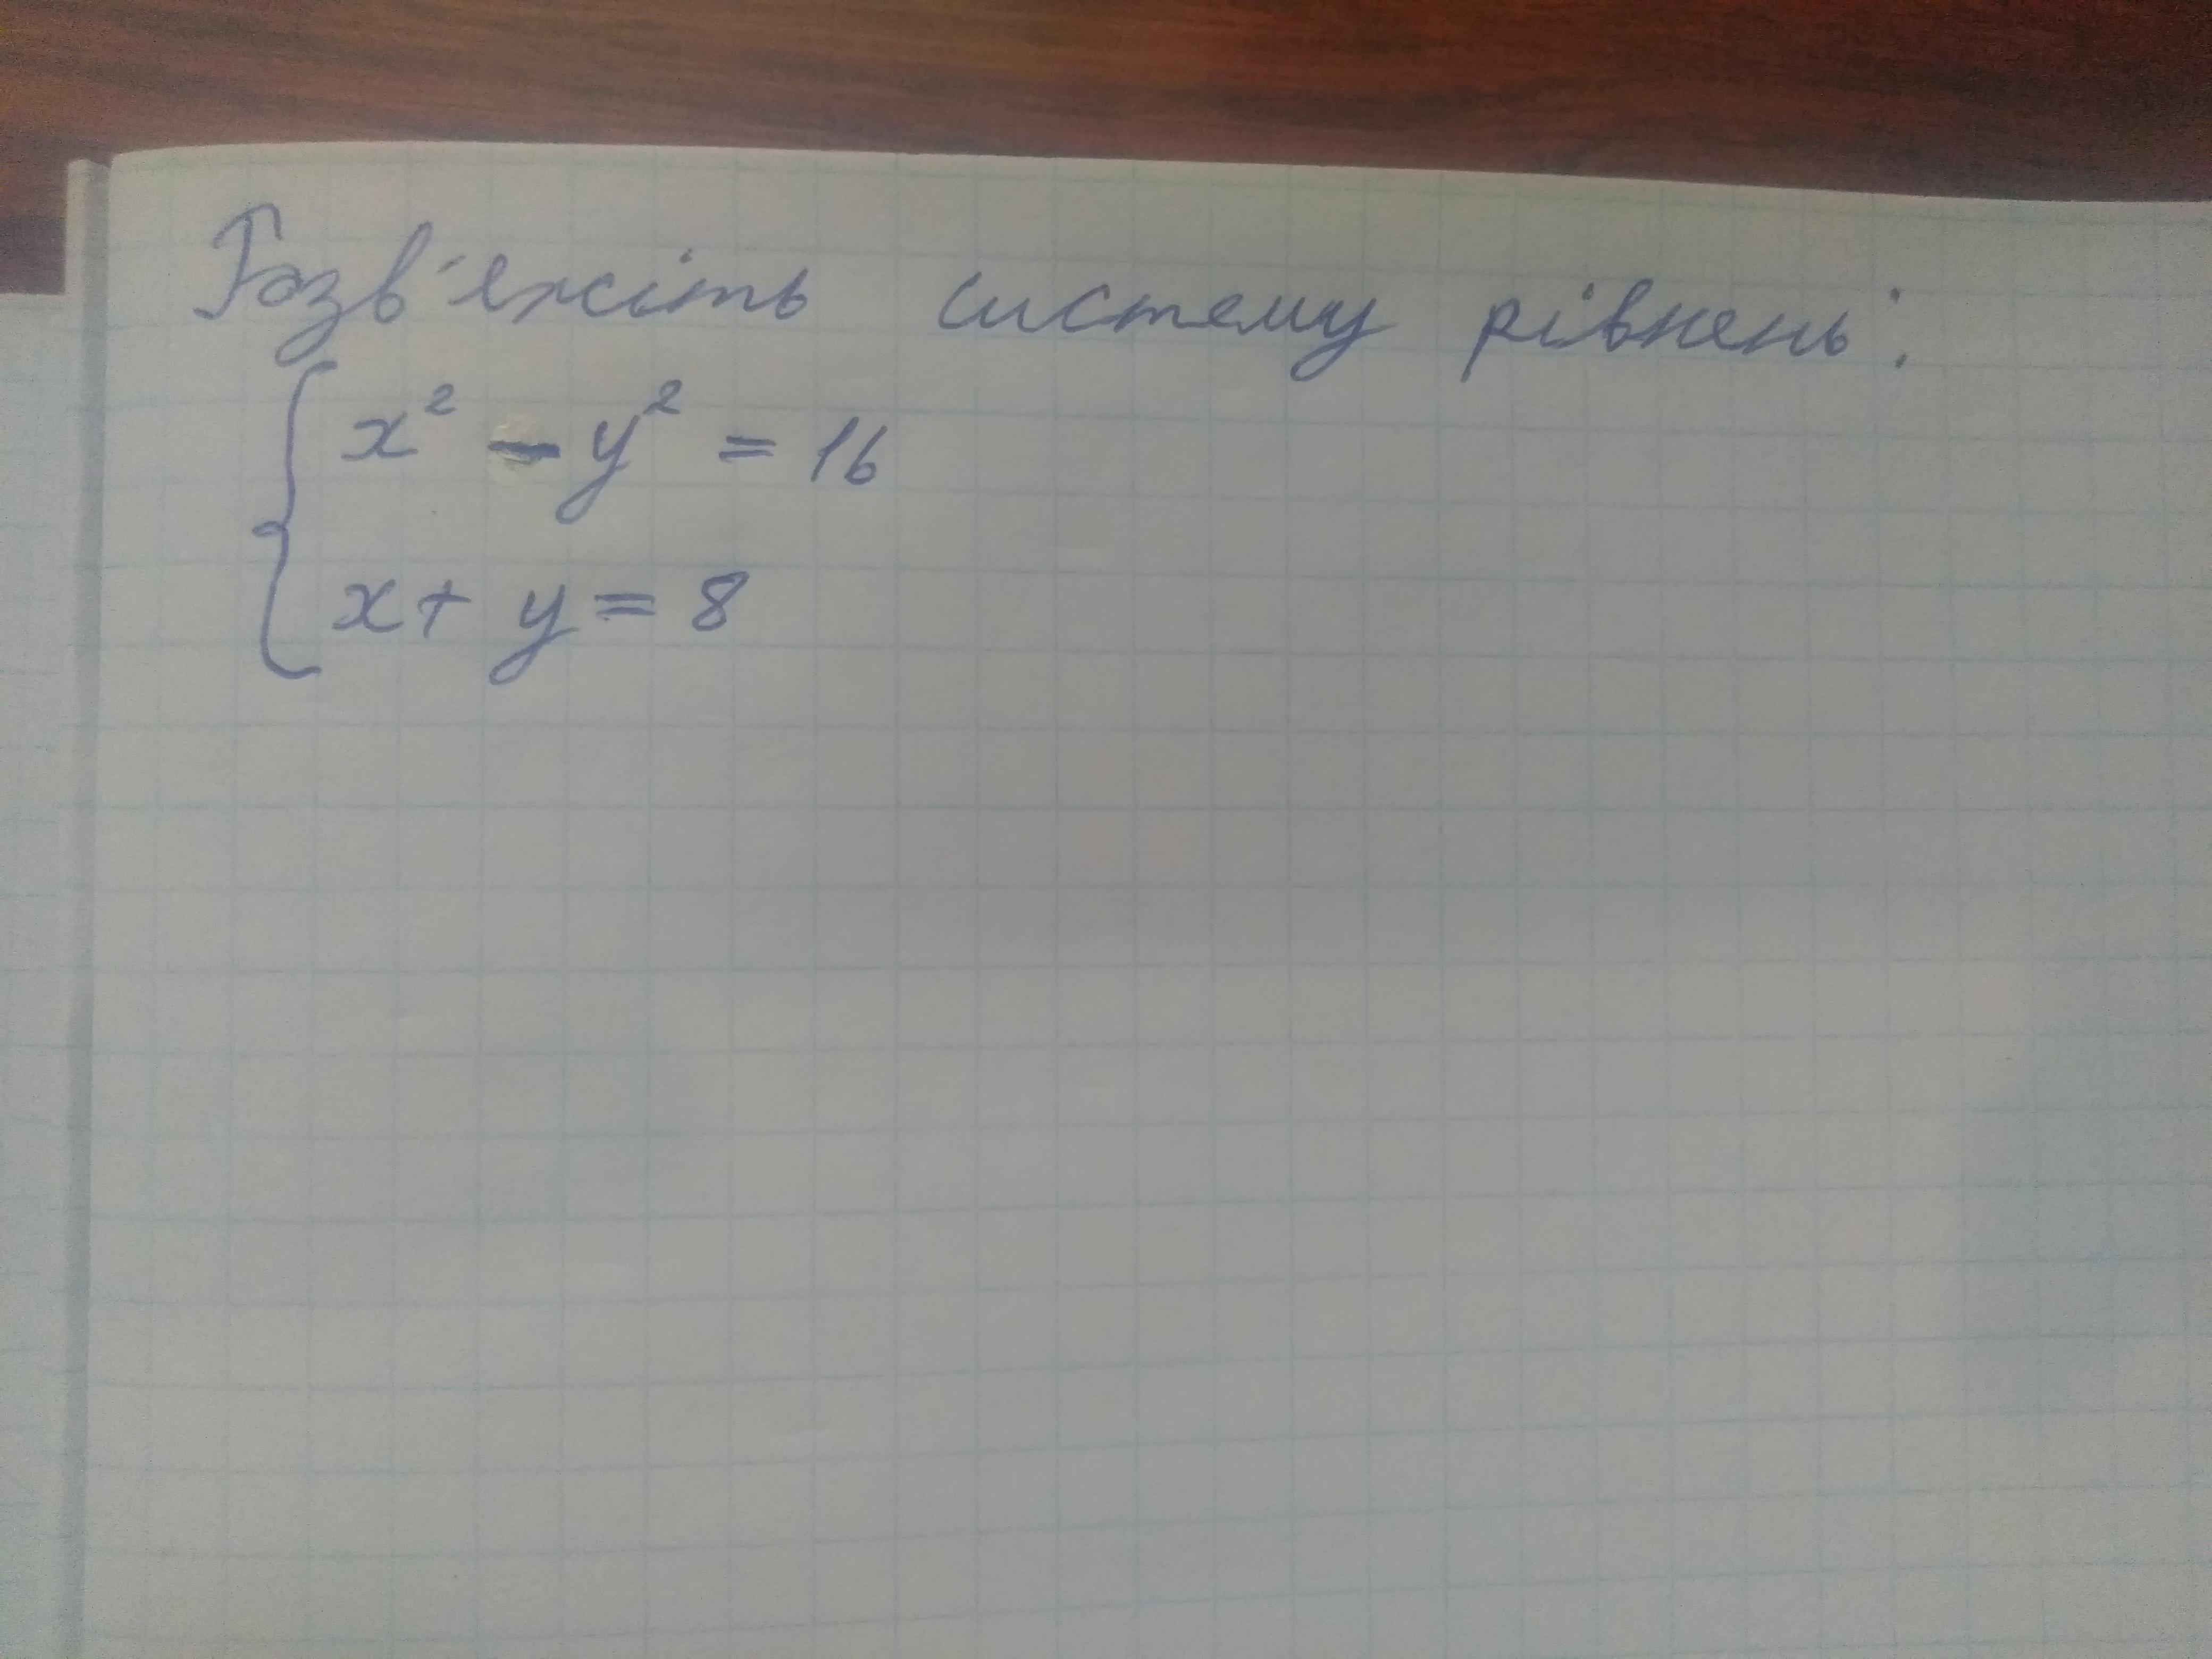 Розв'яжіть систему рівнень:
{ x² - y² = 16
x + y = 8